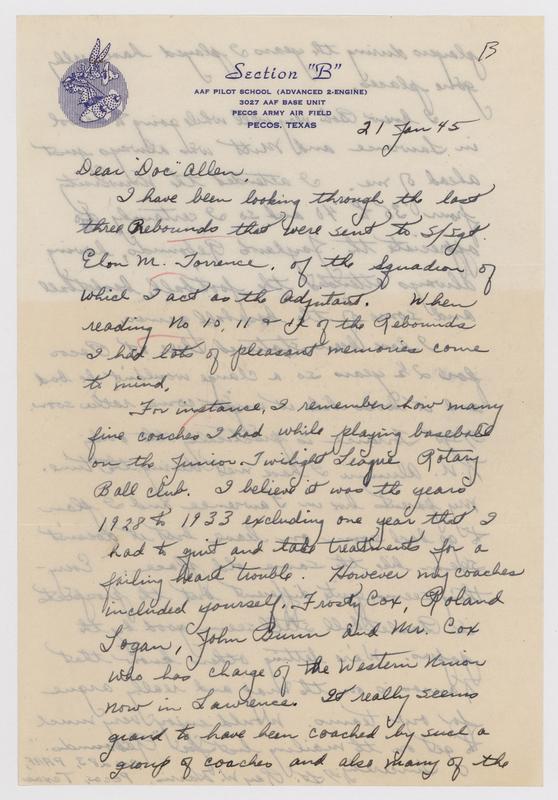 B
Section "B"
AAF PILOT SCHOOL (ADVANCED 2-ENGINE)
3027 AAF BASE UNIT
PECOS ARMY AIR FIELD
PECOS, TEXAS
21 Jan 45
Dear "Doc" Allen,
I have been looking through the last
three Rebounds that were sent to S/Sgt.
Elon M. Torrence, of the Squadron of
which I act as the Adjutant. When
reading No 10, 11 & 12 of the Rebounds
I had lots of pleasant memories come
to mind.
For instance, I remember how many
fine coaches I had while playing baseball
on the Junior Twilight League Rotary
Ball club. I believe it was the years
1928 to 1933 excluding one year that I
had to quit and take treatments for a
failing heart trouble. However my coaches
included yourself, Frosty Cox, Roland
Logan, John Bunn and Mr. Cox
who has charge of the Western Union
now in Lawrence. It really seems
grand to have been coached by such a
group of coaches and also many of the